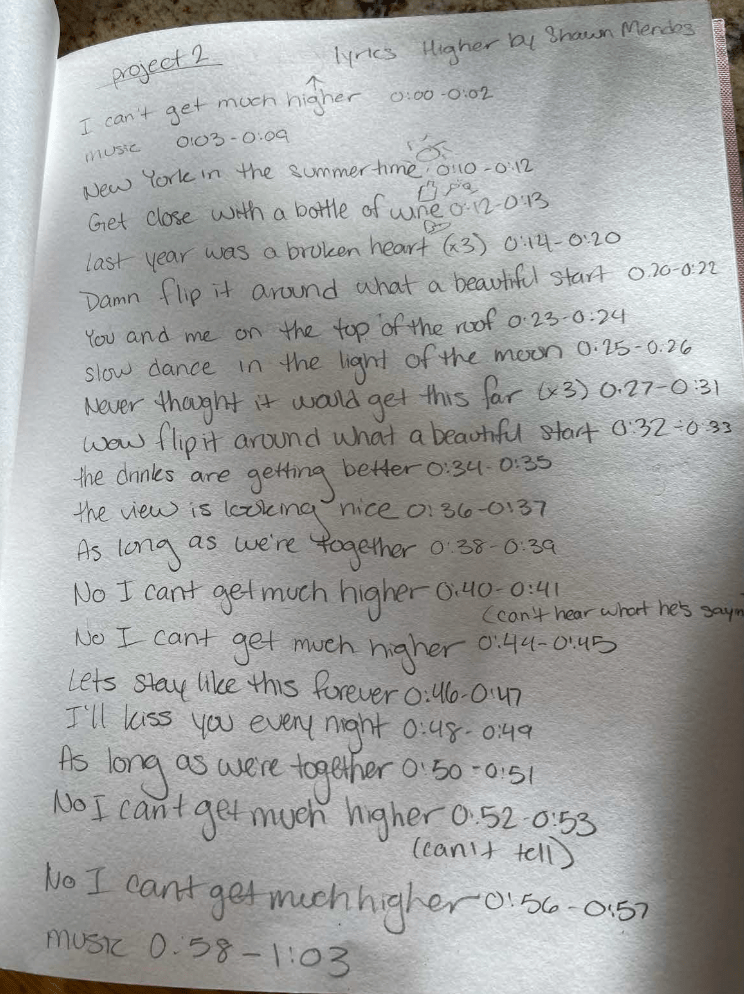 project 2
lyrics Higher by Shawn Mendes
I can't get much higher 0:00-0:02
music 0:03-0:09
New York in the summertime 0:10-0:12
Get close with a bottle of wine 0:12-0:13
last year was a broken heart (x3) 0:14-0:20
Damn flip it around what a beautiful start 0:20-0:22
You and me on the top of the roof 0:23-0:24
slow dance in the light of the moon 0:25-0:26
Never thought it would get this far (x3) 0:27-0:31
Wow flip it around what a beautiful start 0:32-0:33
the drinks are getting better 0:34-0:35
the view is looking nice 0:36-0:37
As long as we're together 0:38-0:39
No I cant get much higher 0:40-0:41
(can't hear what he's sayin
No I cant get much higher 0:44-0:45
Lets stay like this forever 0:46-0:47
I'll kiss you every night 0:48-0:49
As long as we're together 0:50-0:51
No I can't get much higher 0:52-0:53
(can't tell)
No I cant get much higher 0:56-0:57
music 0:58-1:03